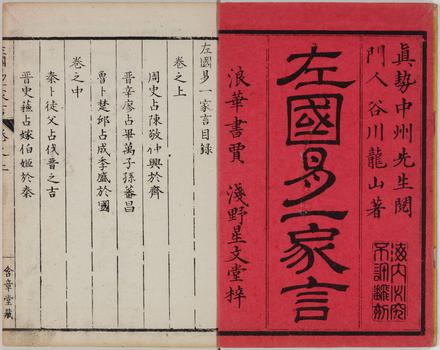 眞勢中州先生閱
門人谷川龍山著
海内必究
不許翻刻
左國易一家言
浪華書賈　淺野星文堂梓
左國易一家言目録
卷之上
周史占陳敬仲興於齊
晋辛廖占畢萬子孫蕃昌
魯卜楚邱占成季盛於國
卷之中
秦卜徒父占伐晋之吉
晋史蘇占嫁伯姬於秦
含章堂藏